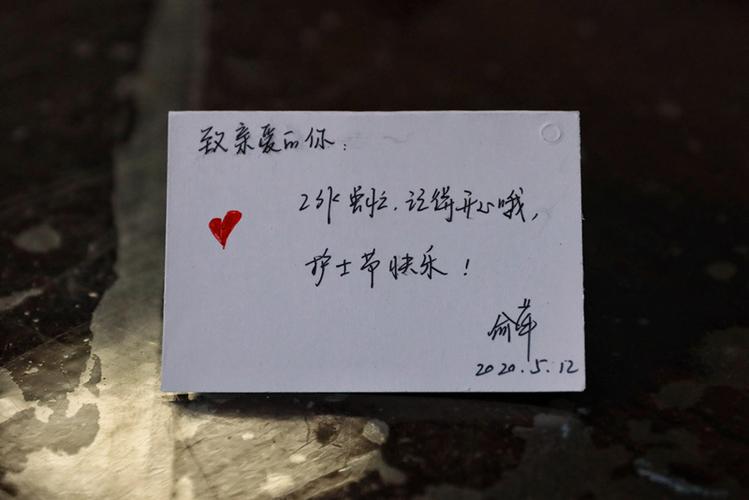 致亲爱的你：
工作繁忙，记得开心哦，
护士节快乐！
俞萍
2020.5.12